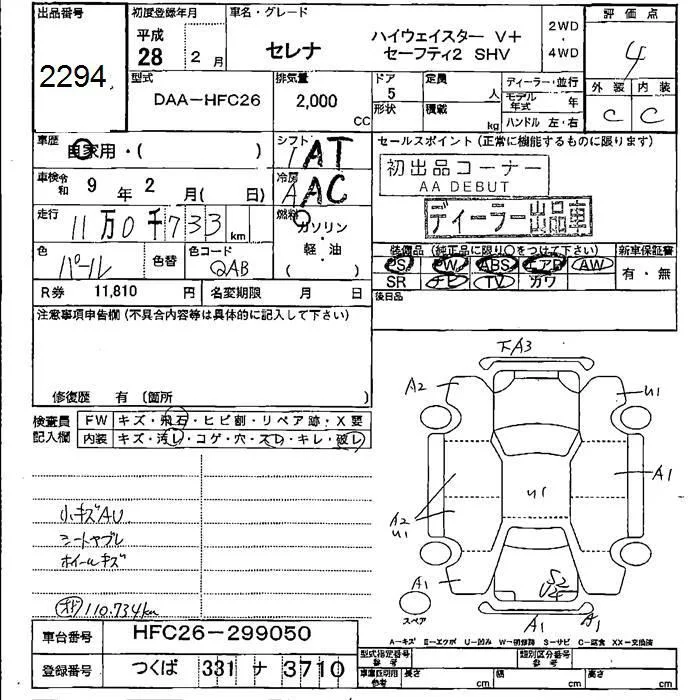 出品番号 初度登録年月 車名・グレード 評価点
平成
28 2月 セレナ ハイウェイスター V+
セーフティ2 SHV 2WD
・
4WD 4
2294 型式 排気量 ドア 定員 ディーラー・並行 外装 内装
DAA-HFC26 2,000 CC 5 人 モデル年式 年 C C
形状 積載 kg ハンドル 左・右
車歴 自家用・( ) シフト AT セールスポイント (正常に機能するものに限ります)
車検 令和 9年 2月( 日) 冷房 AAC 初出品コーナー
AA DEBUT
ディーラー出品車
走行 11万0千733km 燃料 ガソリン
・
軽・油
( )
装備品 (純正品に限り○をつけて下さい) 新車保証書
色 パール 色替 色コード QAB PS PW ABS エアB AW 有・無
SR ナビ TV カワ
R券 11,810 円 名変期限 月 日 後日品
注意事項申告欄 (不具合内容等は具体的に記入して下さい)
修復歴 有 (箇所 )
検査員記入欄 FW キズ・飛石・ヒビ割・リペア跡・X要
内装 キズ・汚レ・コゲ・穴・スレ・キレ・破レ
下A3
A2 U1
A1
U1
A2
U1
A1 S2
A1 A1
スペア
小キズAU
シートヤブレ
ホイールキズ
オド 110,734km
A-キズ E-エクボ U-凹み W-補修跡 S-サビ C-腐食 XX-交換済
車台番号 HFC26-299050 型式指定番号 参考 類別区分番号 参考
登録番号 つくば 331 ナ 3710 車庫証明用 参考 長さ cm 幅 cm 高さ cm